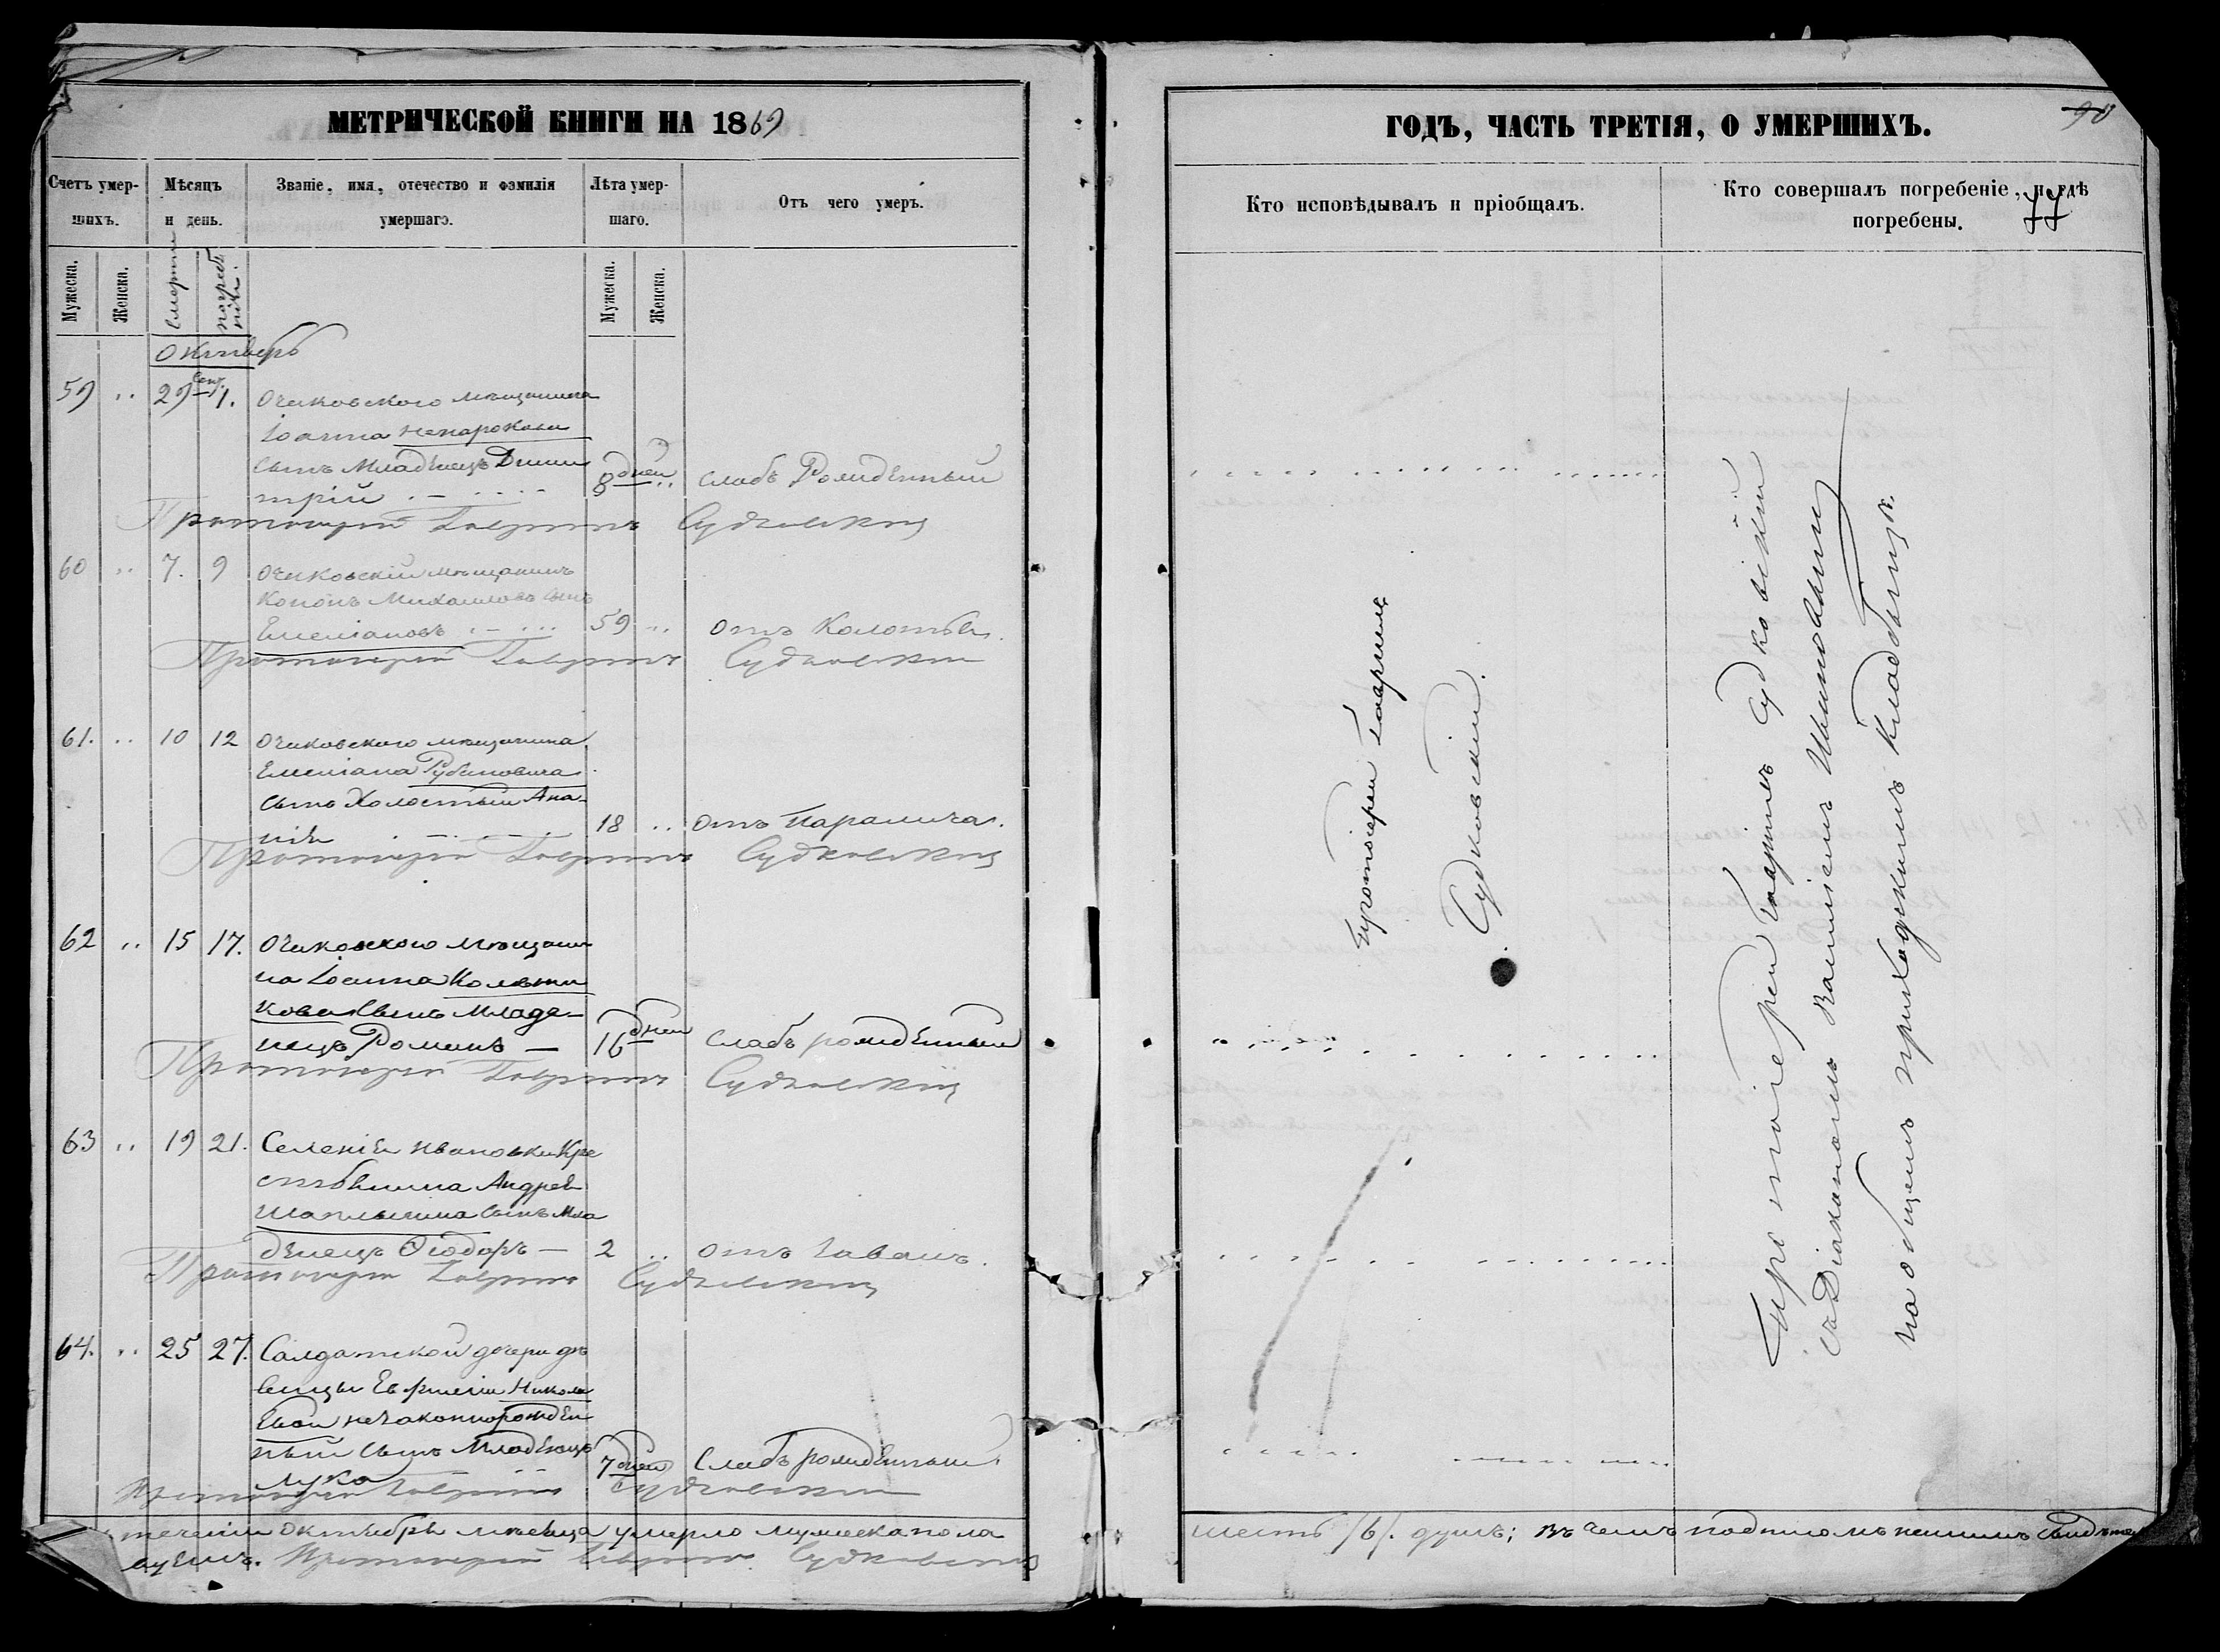 МЕТРИЧЕСКОЙ КНИГИ НА 1869
Счетъ умер-
шихъ.
Мѣсяцъ
и день.
Званіе, имя, отечество и фамилія
умершаго.
Лѣта умер-
шаго.
Отъ чего умеръ.
Мужеска.
Женска.
смерти
погребе
нія.
Мужеска.
Женска.
Октябрь
59 " 29 Сент. 1. Очаковского мѣщанина
Іоанна Ненарокова
сынъ младенецъ Дими
трій 8 дней " слабъ рожденный
Протоіерей Гавріилъ Судковскій
60 " 7. 9 Очаковскій мѣщанинъ
Кононъ Михаиловъ сынъ
Емеліановъ 59 " отъ
Протоіерей Гавріилъ Судковскій
61. " 10 12 Очаковского мѣщанина
Емеліана
сынъ холостый Ана-
нія 18 " отъ паралича.
Протоіерей Гавріилъ Судковскій
62 " 15 17. Очаковского мѣщани
на Іоанна
кова сынъ младе-
нецъ Романъ — 16 дней слабъ рожденный
Протоіерей Гавріилъ Судковскій
63 " 19 21. Селенія Ивановки Кре
стьянина Андрея
Шаплыгина сынъ мла
денецъ Ѳеодоръ — 2 " отъ
Протоіерей Гавріилъ Судковскій
64. " 25 27. Салдатской дочери дѣ
вицы Евфиміи Никола
евой незаконнорожден
ный сынъ младенецъ
Лука 7 дней слабъ рожденный.
Протоіерей Гавріилъ Судковскій
теченіи Октября мѣсяца умерло мужеска пола
Протоіерей Гавріилъ Судковскій
ГОДЪ, ЧАСТЬ ТРЕТІЯ, О УМЕРШИХЪ.
90
77
Кто исповѣдывалъ и пріобщалъ.
Кто совершалъ погребеніе, и гдѣ
погребены.
Протоіерей Гавріилъ
Судковскій.
Протоіерей Гавріилъ Судковскій
съ Діакономъ
на общемъ приходскомъ кладбищѣ.
шесть /6/. душъ; въ чемъ подписомъ нашимъ свидѣтел